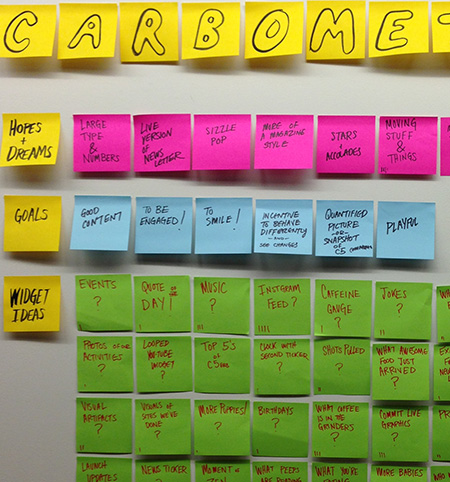 CARBOME
HOPES
+
DREAMS
LARGE
TYPE
&
NUMBERS
LIVE
VERSION
OF
NEWS
LETTER
SIZZLE
POP
MORE OF
A MAGAZINE
STYLE
STARS
+
ACCOLADES
MOVING
STUFF
&
THINGS
GOALS
GOOD
CONTENT
TO BE
ENGAGED!
TO
SMILE!
INCENTIVE
TO BEHAVE
DIFFERENTLY
-AND-
SEE CHANGES
QUANTIFIED
PICTURE
-OR-
SNAPSHOT
OF
C5
PLAYFUL
WIDGET
IDEAS
EVENTS
?
QUOTE OF THE
DAY!
MUSIC
?
INSTAGRAM
FEED?
CAFFEINE
GAUGE
?
JOKES
?
PHOTOS OF OUR
ACTIVITIES
?
LOOPED
YOUTUBE
WIDGET
?
TOP 5'S
OF
?
CLOCK WITH
SECOND TICKER
?
SHOTS PULLED
?
WHAT AWESOME
FOOD JUST
ARRIVED
?
VISUAL
ARTIFACTS
?
VISUALS OF
SITES WE'VE
DONE
?
MORE PUPPIES!
?
BIRTHDAYS
?
WHAT COFFEE
IS IN THE
GRINDERS
?
COMMIT LIVE
GRAPHICS
?
LAUNCH
UPDATES
NEWS TICKER
?
MOMENT OF
ZEN
WHAT PEEPS
ARE READING
WHAT YOU'RE
MORE BABIES